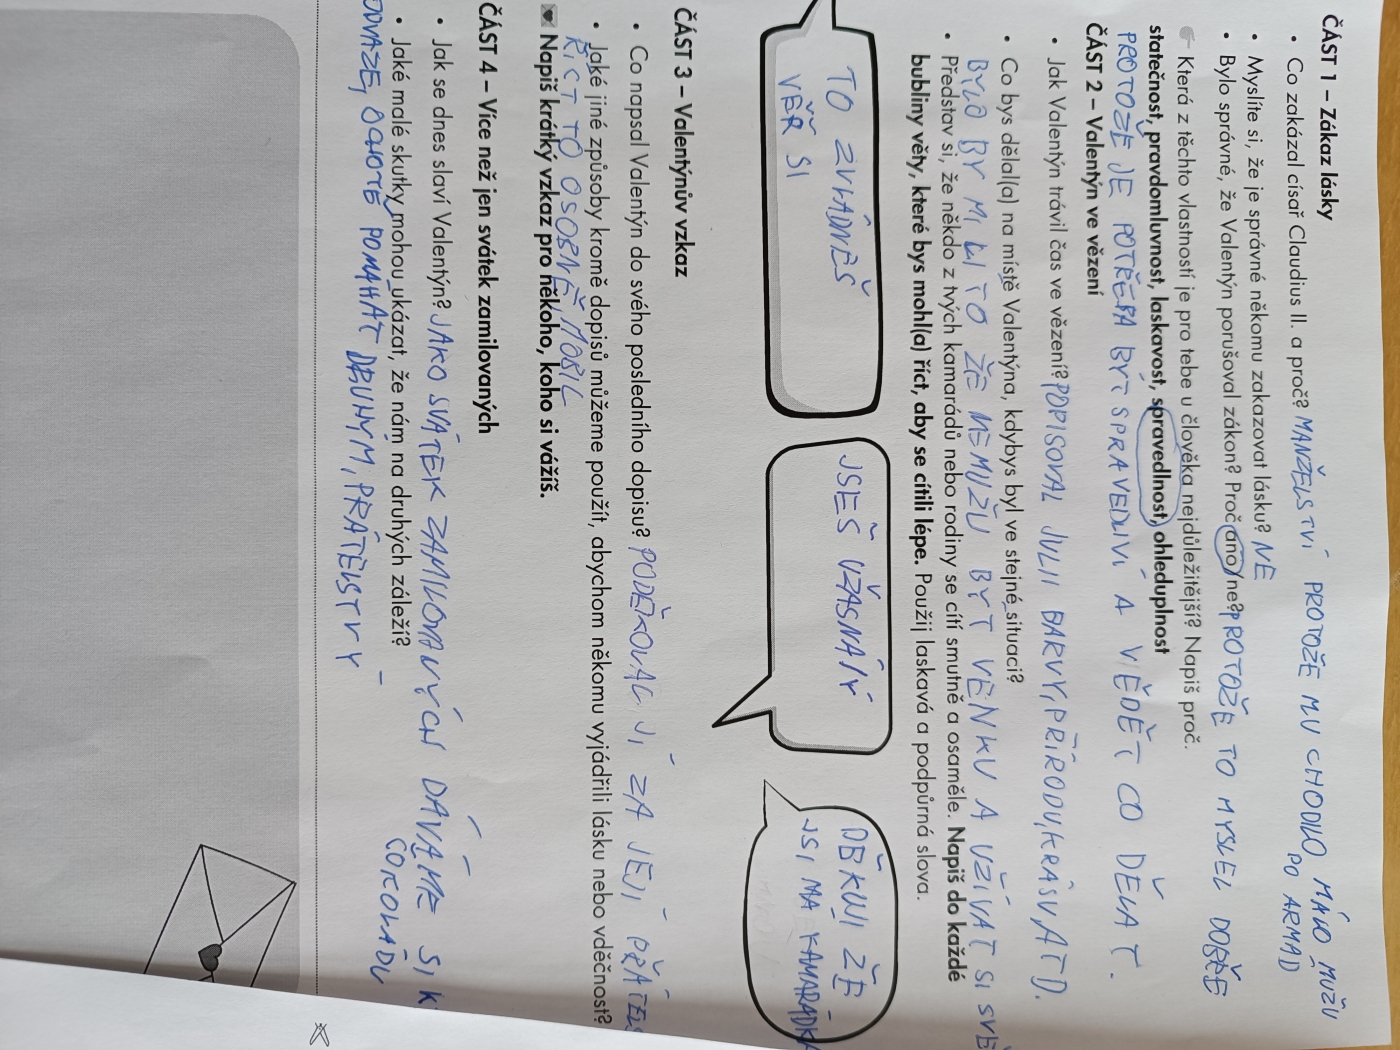 ČÁST 1 – Zákaz lásky
• Co zakázal císař Claudius II. a proč? MANŽELSTVÍ PROTOŽE MU CHODILO MÁLO MUŽŮ
DO ARMAD
• Myslíte si, že je správné někomu zakazovat lásku? NE
• Bylo správné, že Valentýn porušoval zákon? Proč ano/ne? PROTOŽE TO MYSLEL DOBŘE
Která z těchto vlastností je pro tebe u člověka nejdůležitější? Napiš proč.
statečnost, pravdomluvnost, laskavost, spravedlnost, ohleduplnost
PROTOŽE JE POTŘEBA BYT SPRAVEDLIVÍ A VĚDĚT CO DĚLAT.
ČÁST 2 – Valentýn ve vězení
• Jak Valentýn trávil čas ve vězení? POPISOVAL JULII BARVY, PŘÍRODU, KRÁSU ATD.
• Co bys dělal(a) na místě Valentýna, kdybys byl ve stejné situaci?
BYLO BY MI LITO ŽE NEMUŽU BYT VENKU A UŽÍVAT SI SVĚ
• Představ si, že někdo z tvých kamarádů nebo rodiny se cítí smutně a osaměle. Napiš do každé
bubliny věty, které bys mohl(a) říct, aby se cítili lépe. Použij laskavá a podpůrná slova.
TO ZVLÁDNEŠ
VĚŘ SI
JSEŠ ÚŽASNÁ/Ý
DĚKUJI ŽE
JSI MÁ KAMARÁDKA
ČÁST 3 – Valentýnův vzkaz
• Co napsal Valentýn do svého posledního dopisu? PODĚKOVAL JÍ ZA JEJÍ PŘÁTELS
• Jaké jiné způsoby kromě dopisů můžeme použít, abychom někomu vyjádřili lásku nebo vděčnost?
ŘÍCT TO OSOBNĚ, MOBIL
Napiš krátký vzkaz pro někoho, koho si vážíš.
ČÁST 4 – Více než jen svátek zamilovaných
• Jak se dnes slaví Valentýn? JAKO SVÁTEK ZAMILOVANÝCH DÁVÁME SI K
COKOLÁDU
• Jaké malé skutky mohou ukázat, že nám na druhých záleží?
POMAHAT DRUHÝM, PRÁTELSTV